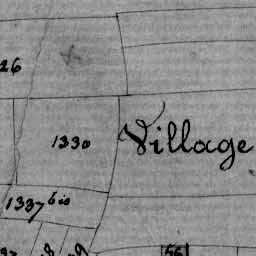 26
1330
Village
1337 bis